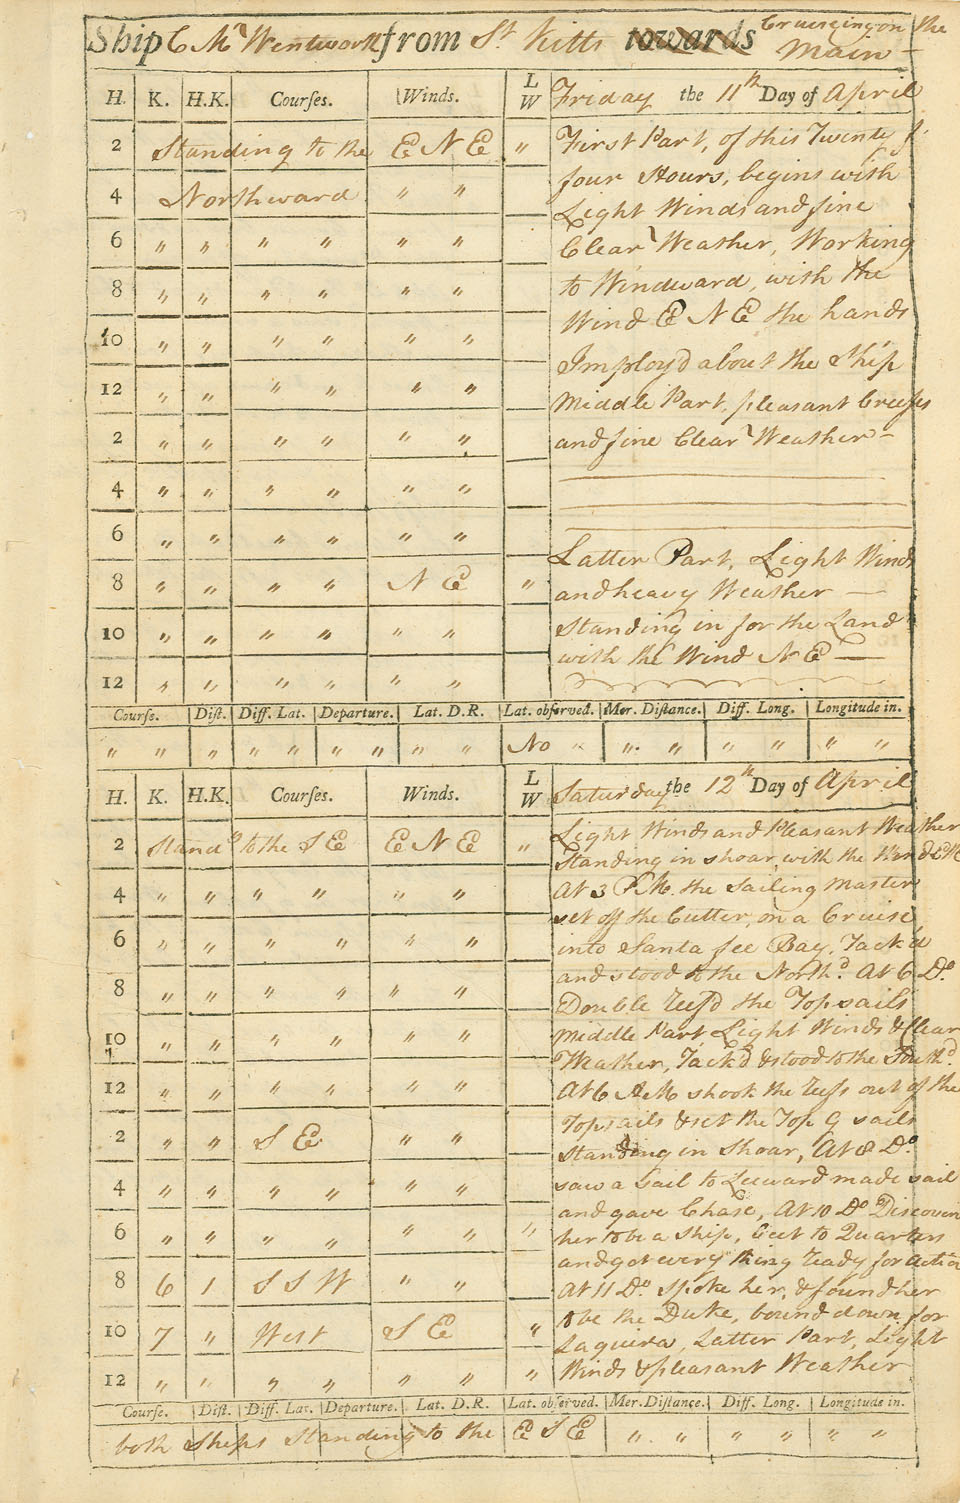 Ship C Mr Wentworth from St Kitts towards Cruiseing on the
Main —
H. K. H.K. Courses. Winds. L W Friday the 11th Day of April
2 Standing to the E N E " First Part, of this Twenty
four Hours, begins with
4 Northward " " Light Winds and fine
6 " " " " " " Clear Weather, Working
8 " " " " " " to Windward, with the
Wind E N E the hands
10 " " " " " " Imploy'd about the Ship
12 " " " " " " Middle Part, pleasant Breeses
2 " " " " " " and fine Clear Weather —
4 " " " " " "
6 " " " " " "
Latter Part, Light Winds
8 " " " " N E " and heavy Weather —
10 " " " " " " Standing in for the Land
with the Wind N E —
12 " " " " " "
Course. Dist. Diff. Lat. Departure. Lat. D.R. Lat. observed. Mer. Distance. Diff. Long. Longitude in.
" " " " " " " " " No " " " " " " "
H. K. H.K. Courses. Winds. L W Saturday the 12th Day of April
2 Standg to the S E E N E " Light Winds and Pleasant Weather
Standing in shoar, with the Wind
4 " " " " " " At 3 P.M. the Sailing Master
set off the Cutter, on a Cruise
6 " " " " " " into Santa fee Bay, Tack'd
and stood to the Northd. At 6 Do.
8 " " " " " " Double Reef'd the Topsails
10 " " " " " " Middle Part Light Winds & Clear
Weather, Tack'd & stood to the Southd.
12 " " " " " " At 6 A.M shook the reefs out of the
Topsails & set the Top G sails
2 " " S E " " Standing in Shoar, At 8 Do.
4 " " " " " " saw a Sail to Leeward made sail
and gave Chase, At 10 Do Discover'd
6 " " " " " " " her to be a Ship, Beet to Quarters
and got every thing ready for action
8 6 1 S S W " " At 11 Do. Spoke her, & found her
to be the Duke, bound down for
10 7 " West S E " Laguira, Latter Part, Light
12 " " " " " " " Winds & pleasant Weather
Course. Dist. Diff. Lat. Departure. Lat. D.R. Lat. observed. Mer. Distance. Diff. Long. Longitude in.
both Ships Standing to the E S E " " " " " "